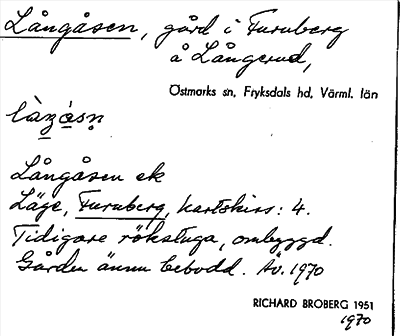 Långåsen, gård i Furuberg
å Långerud,
Östmarks sn, Fryksdals hd, Värml. län
Långåsen ek
Läge, Furuberg, kartskiss: 4.
Tidigare rökstuga, ombyggd.
Gården ännu bebodd. Av. 1970
RICHARD BROBERG 1951
1970